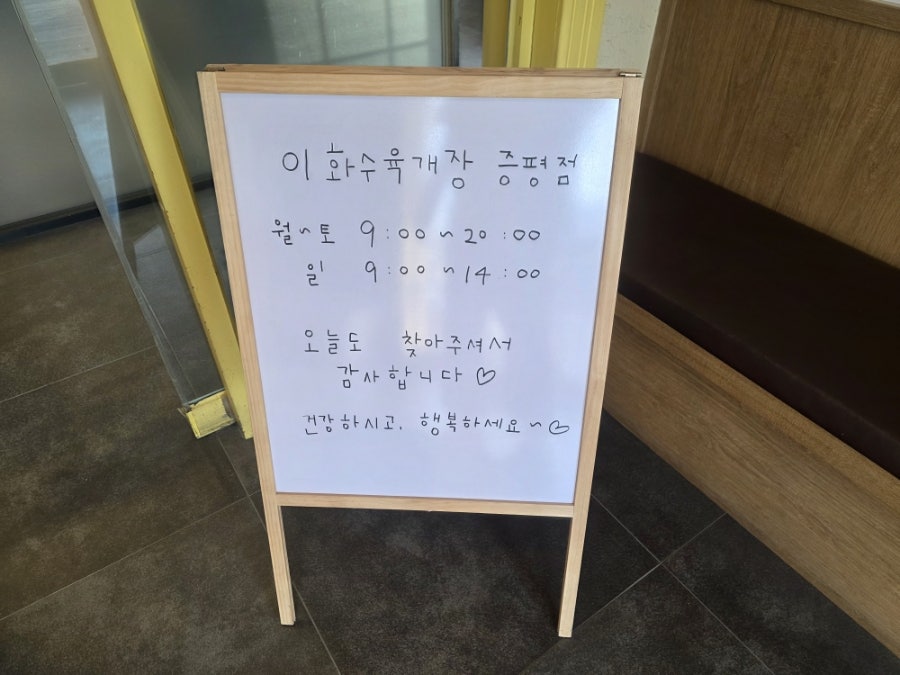 이화수육개장 증평점
월~토 9:00~20:00
일 9:00~14:00
오늘도 찾아주셔서
감사합니다♡
건강하시고, 행복하세요~♡